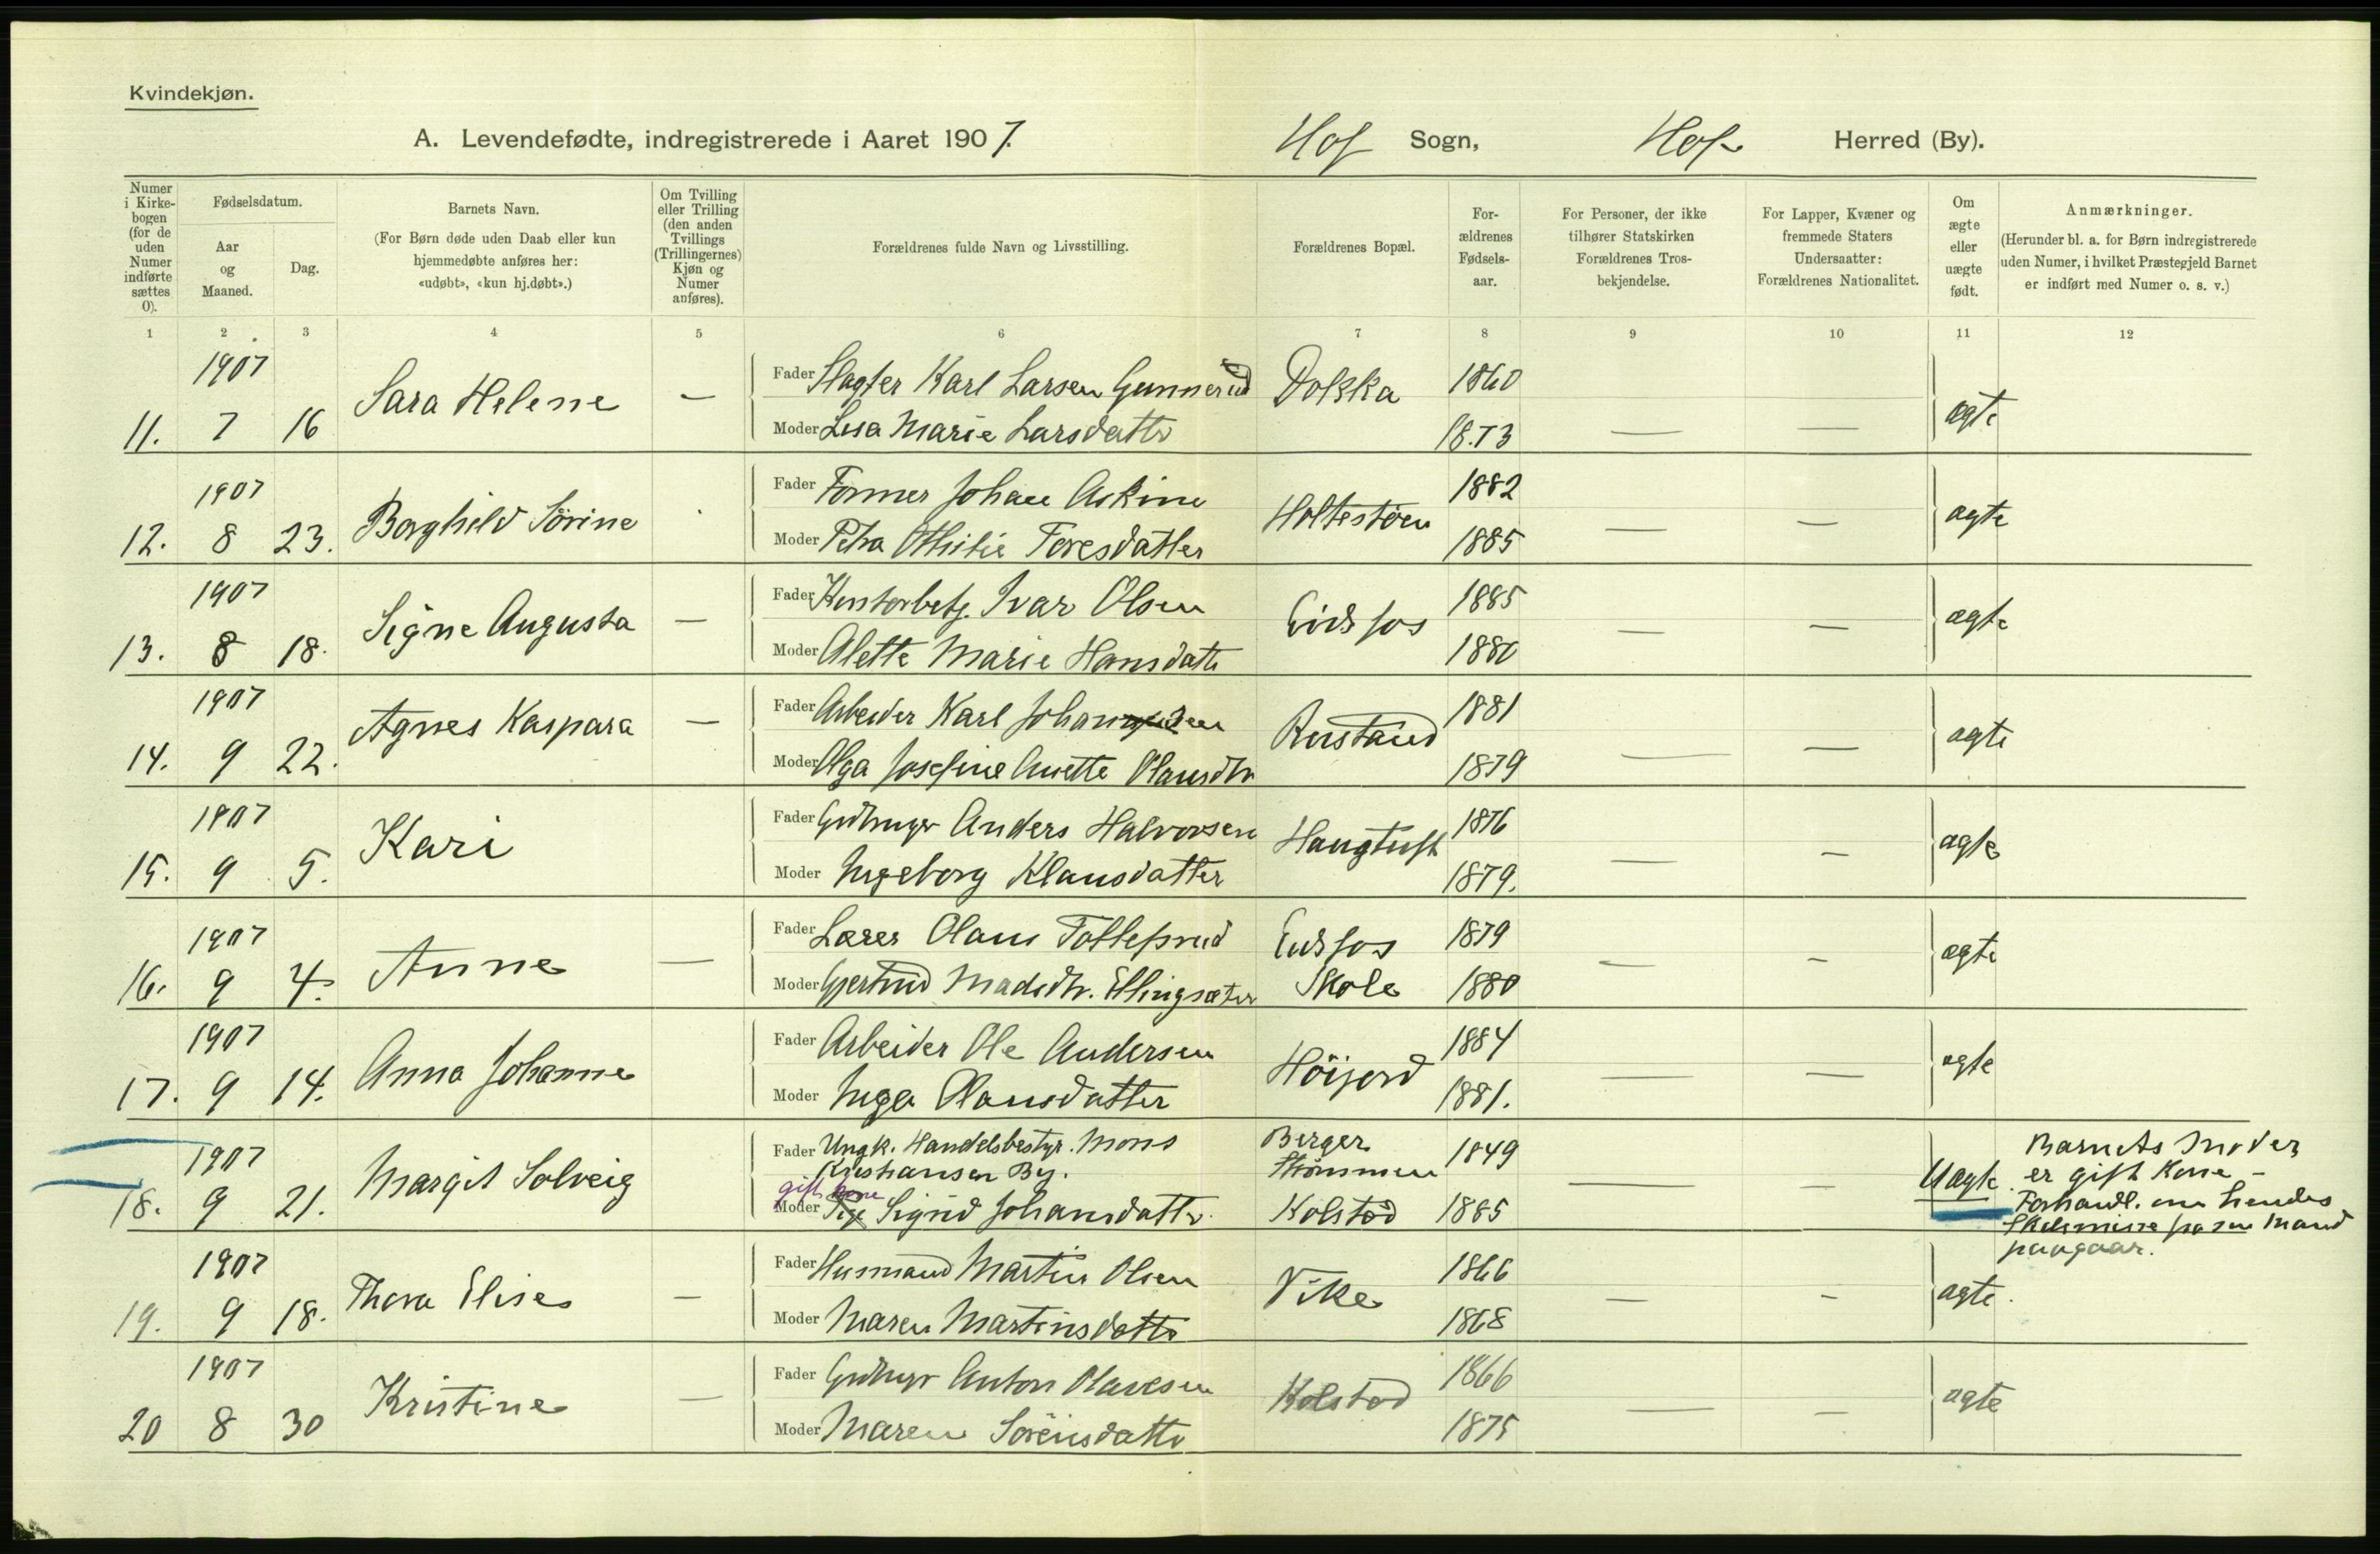 Kvindekjøn.
A. Levendefødte, indregistrerede i Aaret 1907. Hof Sogn, Hof Herred (By).
Numer i Kirkebogen (for de uden Numer indførte sættes 0).
Fødselsdatum.
Aar og Maaned.
Dag.
Barnets Navn.
(For Børn døde uden Daab eller kun hjemmedøbte anføres her: «udøbt», «kun hj.døbt».)
Om Tvilling eller Trilling (den anden Tvillings (Trillingernes) Kjøn og Numer anføres).
Forældrenes fulde Navn og Livsstilling.
Forældrenes Bopæl.
Forældrenes Fødselsaar.
For Personer, der ikke tilhører Statskirken Forældrenes Trosbekjendelse.
For Lapper, Kvæner og fremmede Staters Undersaatter: Forældrenes Nationalitet.
Om ægte eller uægte født.
Anmærkninger.
(Herunder bl. a. for Børn indregistrerede uden Numer, i hvilket Præstegjeld Barnet er indført med Numer o. s. v.)
1 2 3 4 5 6 7 8 9 10 11 12
1907 Fader Slagter Karl Larsen Gunnerud 1860
11. 7 16 Sara Helene — Dokka — — ægte
Moder Lisa Marie Larsdattr 1873
1907 Fader Former Johan Askim 1882
12. 8 23. Borghild Sörine Holtestöen — — ægte
Moder Petra Othilie Toresdatter 1885
1907 Fader Kontorbetj. Ivar Olsen 1885
13. 8 18. Signe Augusta — Eidsfos — — ægte
Moder Alette Marie Hansdattr 1880
1907 Fader Arbeider Karl 1881
14. 9 22. Agnes Kaspara — — — ægte
Moder Olga Josefine Anette Olausdtr 1879
1907 Fader Grdbruger Anders Halvorsen 1876
15. 9 5. Kari Haugtuft — — ægte
Moder Ingeborg Klausdatter 1879.
1907 Fader Lærer Olaus Tollefsrud 1879
16. 9 4. Anne — Eidsfos Skole — — ægte
Moder Gjertrud Madsdtr. Ellingsæter 1880
1907 Fader Arbeider Ole Andersen 1884
17. 9 14. Anna Johanne Höijord — — ægte
Moder Inga Olausdatter 1881.
1907 Fader Ungk. Handelsbestyr. Mons Kristiansen By. Berger Strömmen 1849
18. 9 21. Margit Solveig — — Uægte
gift kone
Moder Pige Sigrid Johansdattr. Kolstad 1885
Barnets Moder
er gift Kone –
Forhandl. om hendes
Skilsmisse fra sin Mand
paagaar.
1907 Fader Husmand Martin Olsen 1866
19. 9 18. Thora Elise — Vike — — ægte.
Moder Maren Martinsdattr 1868
1907 Fader Grdbrgr Anton Olavesen 1866
20 8 30 Kristine — Kolstad — — ægte
Moder Maren Sörensdattr 1875